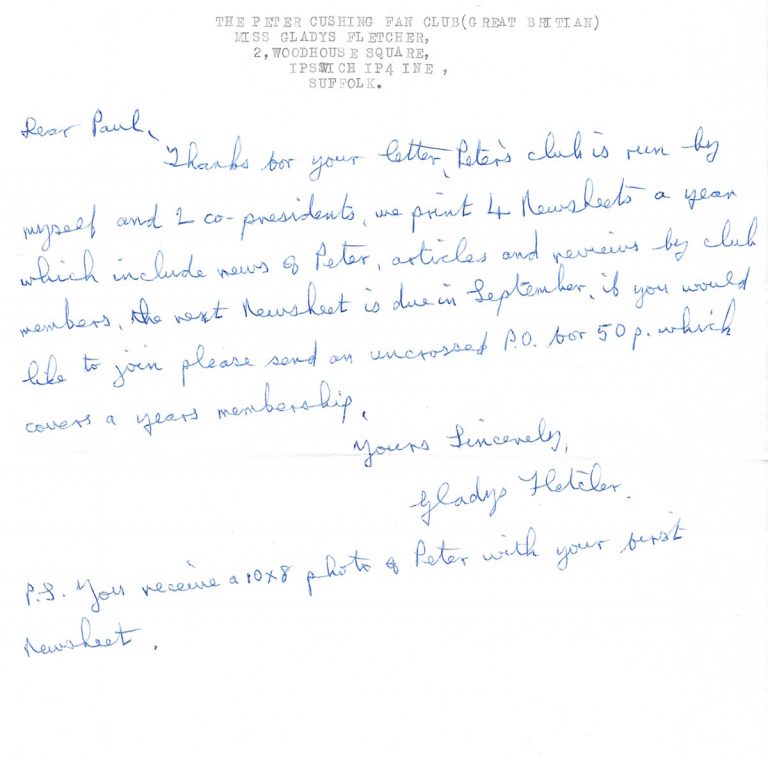 THE PETER CUSHING FAN CLUB(GREAT BRITIAN)
MISS GLADYS FLETCHER,
2,WOODHOUSE SQUARE,
IPSWICH IP4 INE ,
SUFFOLK.
Dear Paul,
Thanks for your letter, Peter's club is run by
myself and 2 co-presidents, we print 4 Newsheets a year
which include news of Peter, articles and reviews by club
members, the next Newsheet is due in September, if you would
like to join please send an uncrossed P.O. for 50p. which
covers a years membership.
Yours Sincerely,
Gladys Fletcher.
P.S. You receive a 10x8 photo of Peter with your first
Newsheet.